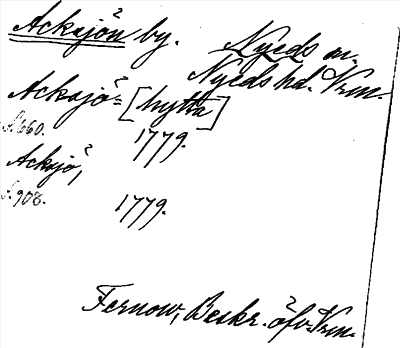 Acksjön by. Nyeds sn.
Nyeds hd. Vrm.
Acksjö= [hytta]
s. 660. 1779.
Acksjö,
s. 908. 1779.
Fernow, Beskr. öfv. Vrm.